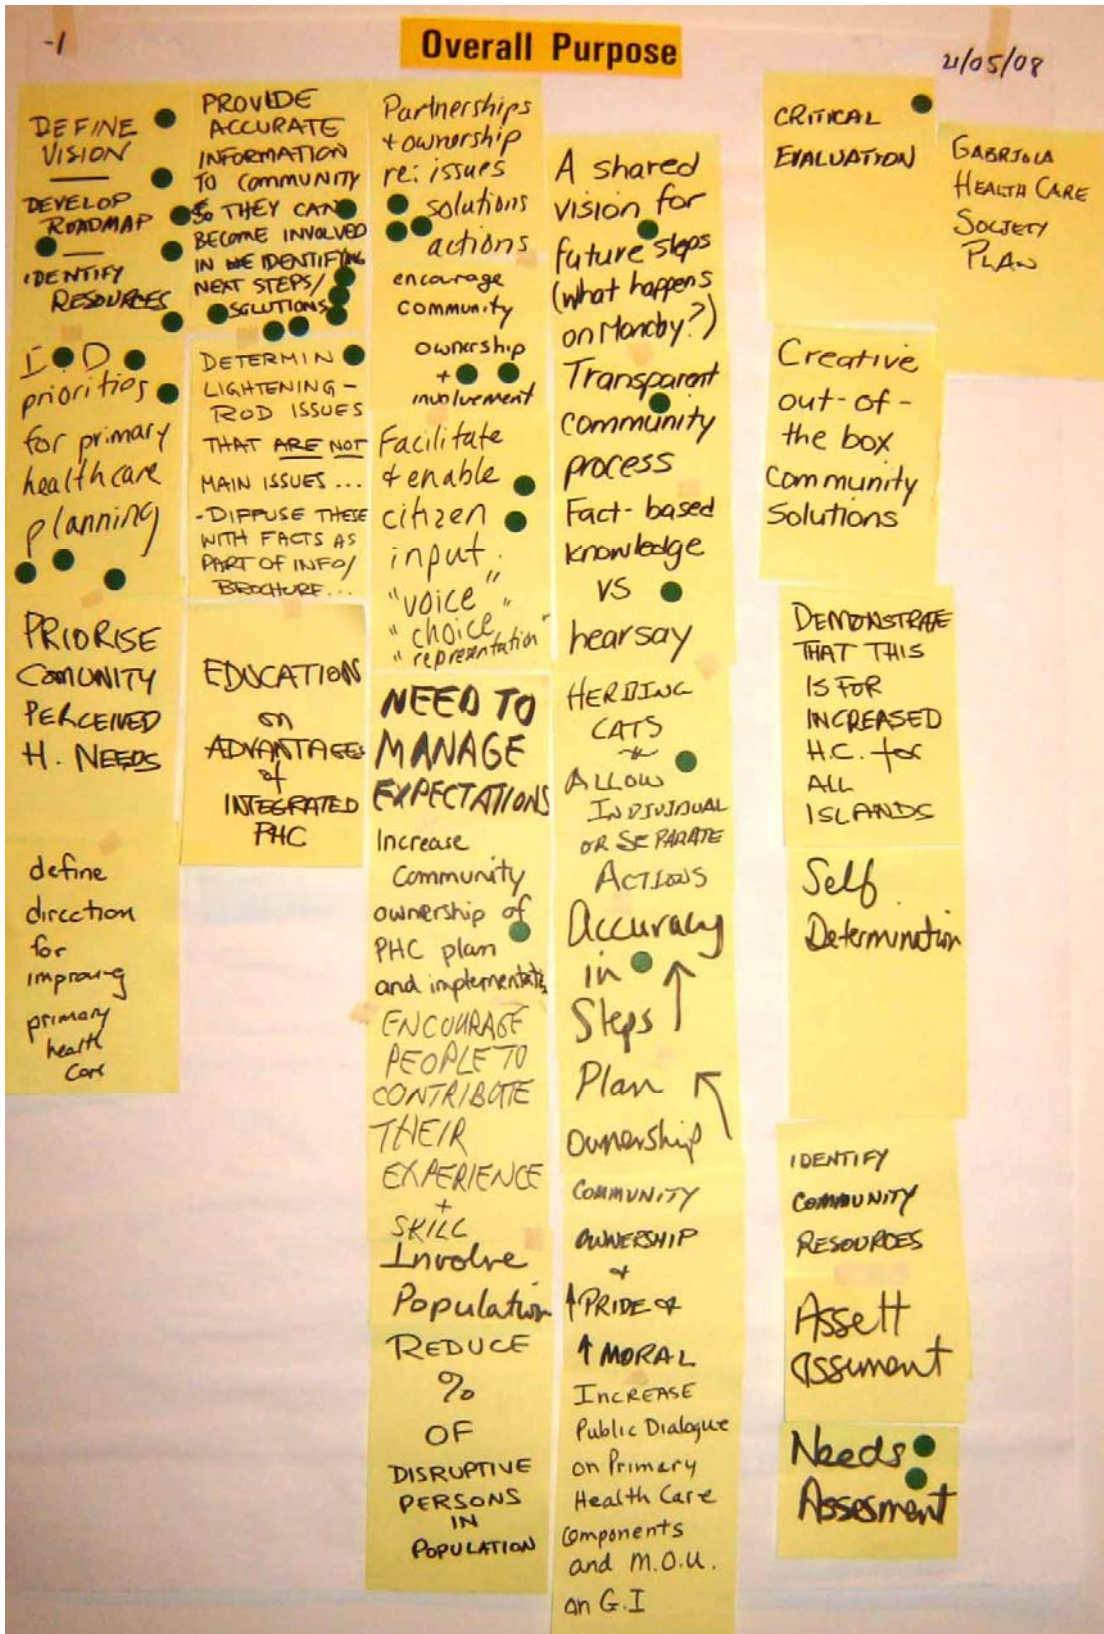 -1
Overall Purpose
21/05/08
DEFINE
VISION
DEVELOP
ROADMAP
IDENTIFY
RESOURCES
I.D
priorities
for primary
healthcare
planning
PRIORISE
COMUNITY
PERCEIVED
H. NEEDS
define
direction
for
improving
primary
health
care
PROVIDE
ACCURATE
INFORMATION
TO COMMUNITY
SO THEY CAN
BECOME INVOLVED
IN IDENTIFYING
NEXT STEPS/
SOLUTIONS
DETERMIN
LIGHTENING-
ROD ISSUES
THAT ARE NOT
MAIN ISSUES...
-DIFFUSE THESE
WITH FACTS AS
PART OF INFO/
BROCHURE...
EDUCATION
on
ADVANTAGES
of
INTEGRATED
PHC
Partnerships
+ ownership
re: issues
solutions
actions
encourage
community
ownership
+
involvement
Facilitate
& enable
citizen
input.
"voice"
"choice"
"representation"
NEED TO
MANAGE
EXPECTATIONS
Increase
Community
ownership of
PHC plan
and implementati
ENCOURAGE
PEOPLE TO
CONTRIBUTE
THEIR
EXPERIENCE
+
SKILL
Involve
Population
REDUCE
%
OF
DISRUPTIVE
PERSONS
IN
POPULATION
A shared
vision for
future steps
(what happens
on Monday?)
Transparent
community
process
Fact-based
knowledge
vs
hearsay
HERDING
CATS
ALLOW
INDIVIDUAL
OR SEPARATE
ACTIONS
Accuracy
in
Steps ↑
Plan ↖
Ownership
COMMUNITY
OWNERSHIP
+
↑ PRIDE &
↑ MORAL
INCREASE
Public Dialogue
on Primary
Health Care
Components
and M.O.U.
on G.I
CRITICAL
EVALUATION
Creative
out-of-
the box
Community
Solutions
DEMONSTRATE
THAT THIS
IS FOR
INCREASED
H.C. for
ALL
ISLANDS
Self
Determination
IDENTIFY
COMMUNITY
RESOURCES
Assett
assument
Needs
Assesment
GABRIOLA
HEALTH CARE
SOCIETY
PLAN